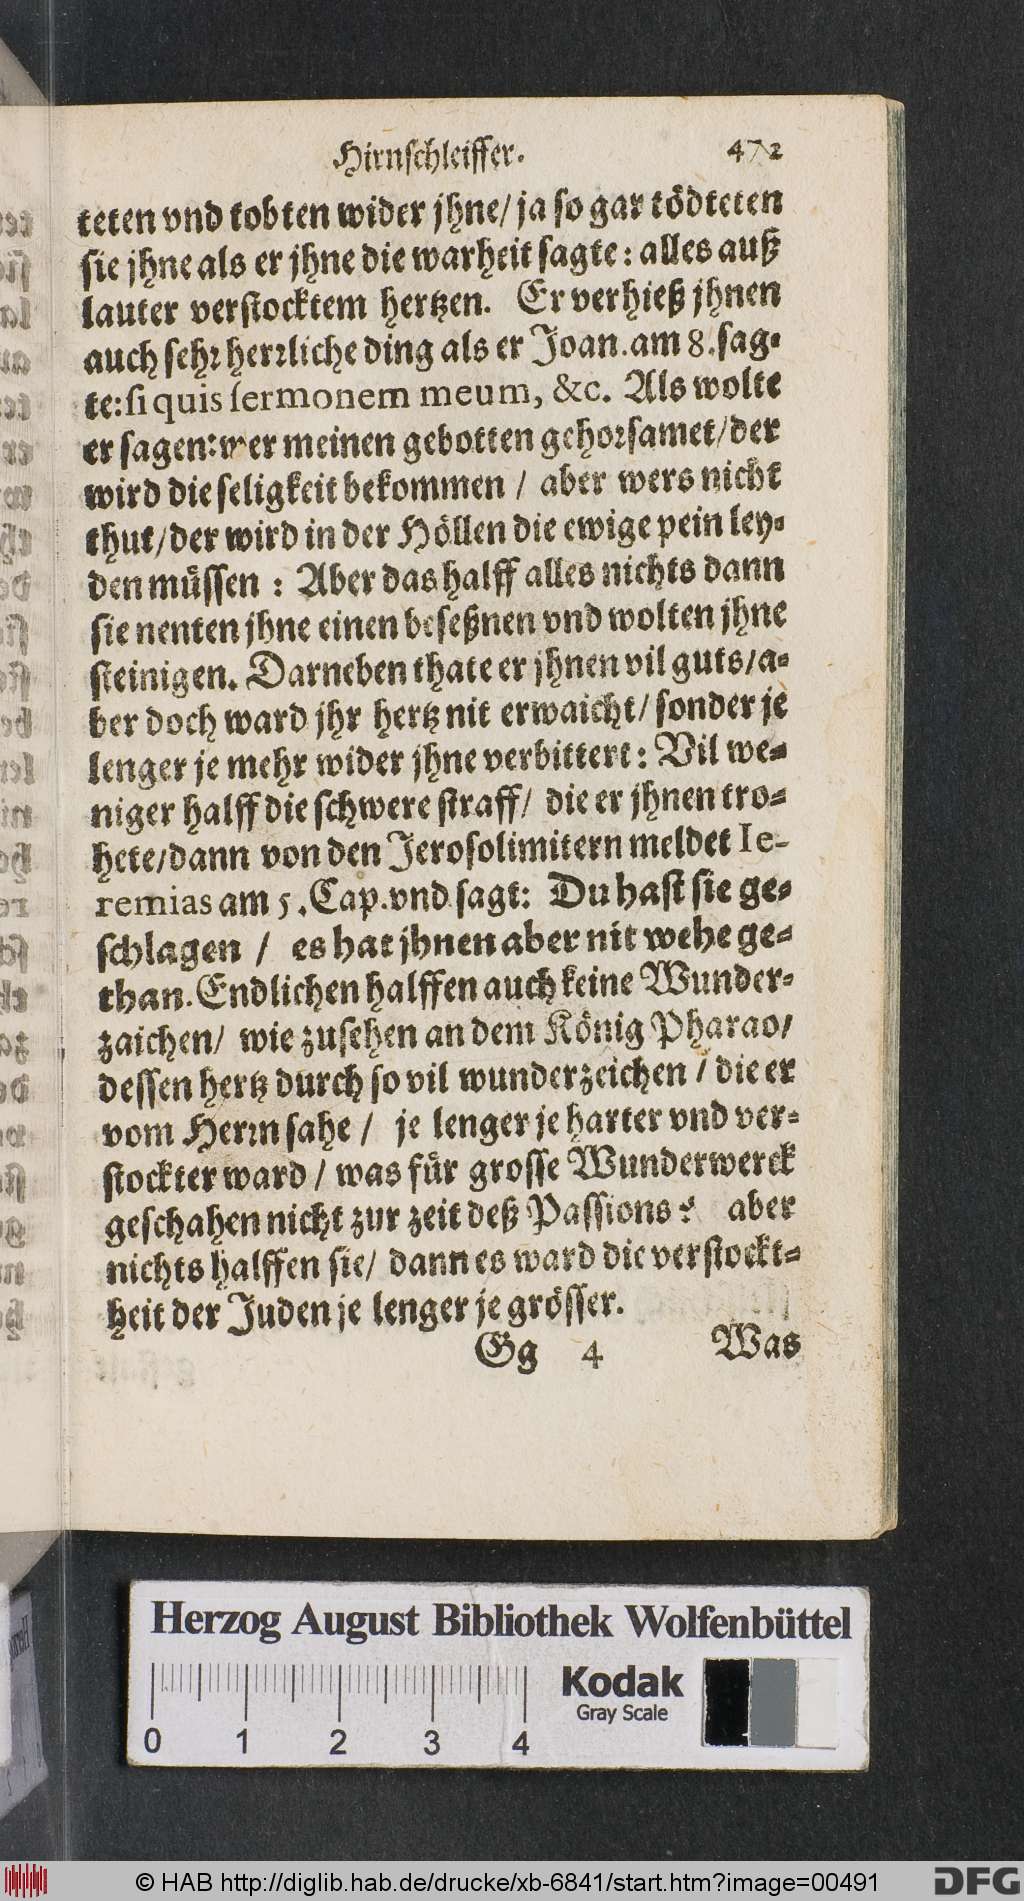 Hirnschleiffer. 472
teten vnd tobten wider jhne/ ja so gar tödteten
sie jhne als er jhne die warheit sagte: alles auß
lauter verstocktem hertzen. Er verhieß jhnen
auch sehr herrliche ding als er Joan. am 8. sag-
te: si quis sermonem meum, &c. Als wolte
er sagen: wer meinen gebotten gehorsamet/ der
wird die seligkeit bekommen / aber wers nicht
thut/ der wird in der Höllen die ewige pein ley-
den müssen : Aber das halff alles nichts dann
sie nenten jhne einen beseßnen vnd wolten jhne
steinigen. Darneben thate er jhnen vil guts/ a-
ber doch ward jhr hertz nit erwaicht/ sonder je
lenger je mehr wider jhne verbittert: Vil we-
niger halff die schwere straff/ die er jhnen tro-
hete/ dann von den Jerosolimitern meldet Ie-
remias am 5. Cap. vnd sagt: Du hast sie ge-
schlagen / es hat jhnen aber nit wehe ge-
than. Endlichen halffen auch keine Wunder-
zaichen/ wie zusehen an dem König Pharao/
dessen hertz durch so vil wunderzeichen / die er
vom Herrn sahe / je lenger je harter vnd ver-
stockter ward / was für grosse Wunderwerck
geschahen nicht zur zeit deß Passions? aber
nichts halffen sie/ dann es ward die verstockt-
heit der Juden je lenger je grösser.
Gg 4 Was
Herzog August Bibliothek Wolfenbüttel
Kodak
Gray Scale
0 1 2 3 4
© HAB http://diglib.hab.de/drucke/xb-6841/start.htm?image=00491
DFG